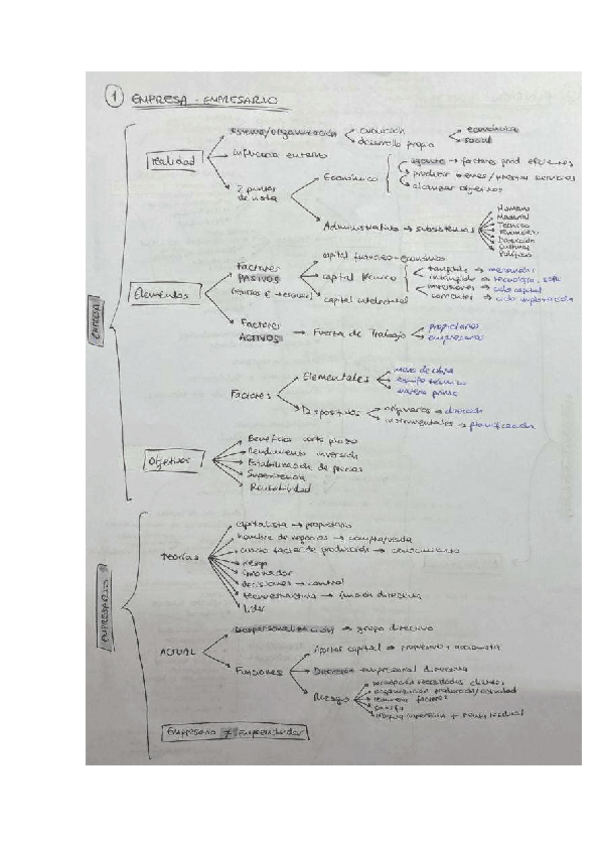 1 EMPRESA - EMPRESARIO
EMPRESA
realidad
sistema/organización
económica
desarrollo propio
social
influencia entorno
2 puntos de vista
Económico
factores prod. eficientes
producir bienes/prestar servicios
alcanzar objetivos
Administrativo → subsistemas
Humano
Material
Técnico
Financiero
Dirección
Cultural
Político
Elementos
Factores PASIVOS
capital financiero-económico
capital técnico
tangible →
intangible → tecnología, soft
inversiones → ciclo capital
corrientes → ciclo explotación
capital intelectual
Factores ACTIVOS → Fuerza de Trabajo
propietarios
empresarios
Factores
Elementales
mano de obra
equipo técnico
materia prima
Dispositivos
originarios → dirección
instrumentales → planificación
Objetivos
Beneficios corto plazo
Rendimiento inversión
Estabilización de precios
Supervivencia
Rentabilidad
EMPRESARIO
Teorías
capitalista → propietario
hombre de negocios → compra/venta
cuarto factor de producción → conocimiento
riesgo
innovador
decisiones → control
tecnoestructura → función directiva
Líder
ACTUAL
Despersonalización → grupo directivo
Funciones
Aportar capital → propietario + accionista
Dirección empresarial directiva
Riesgo
percepción necesidades clientes
organización
factores
Empresario ≠ Emprendedor